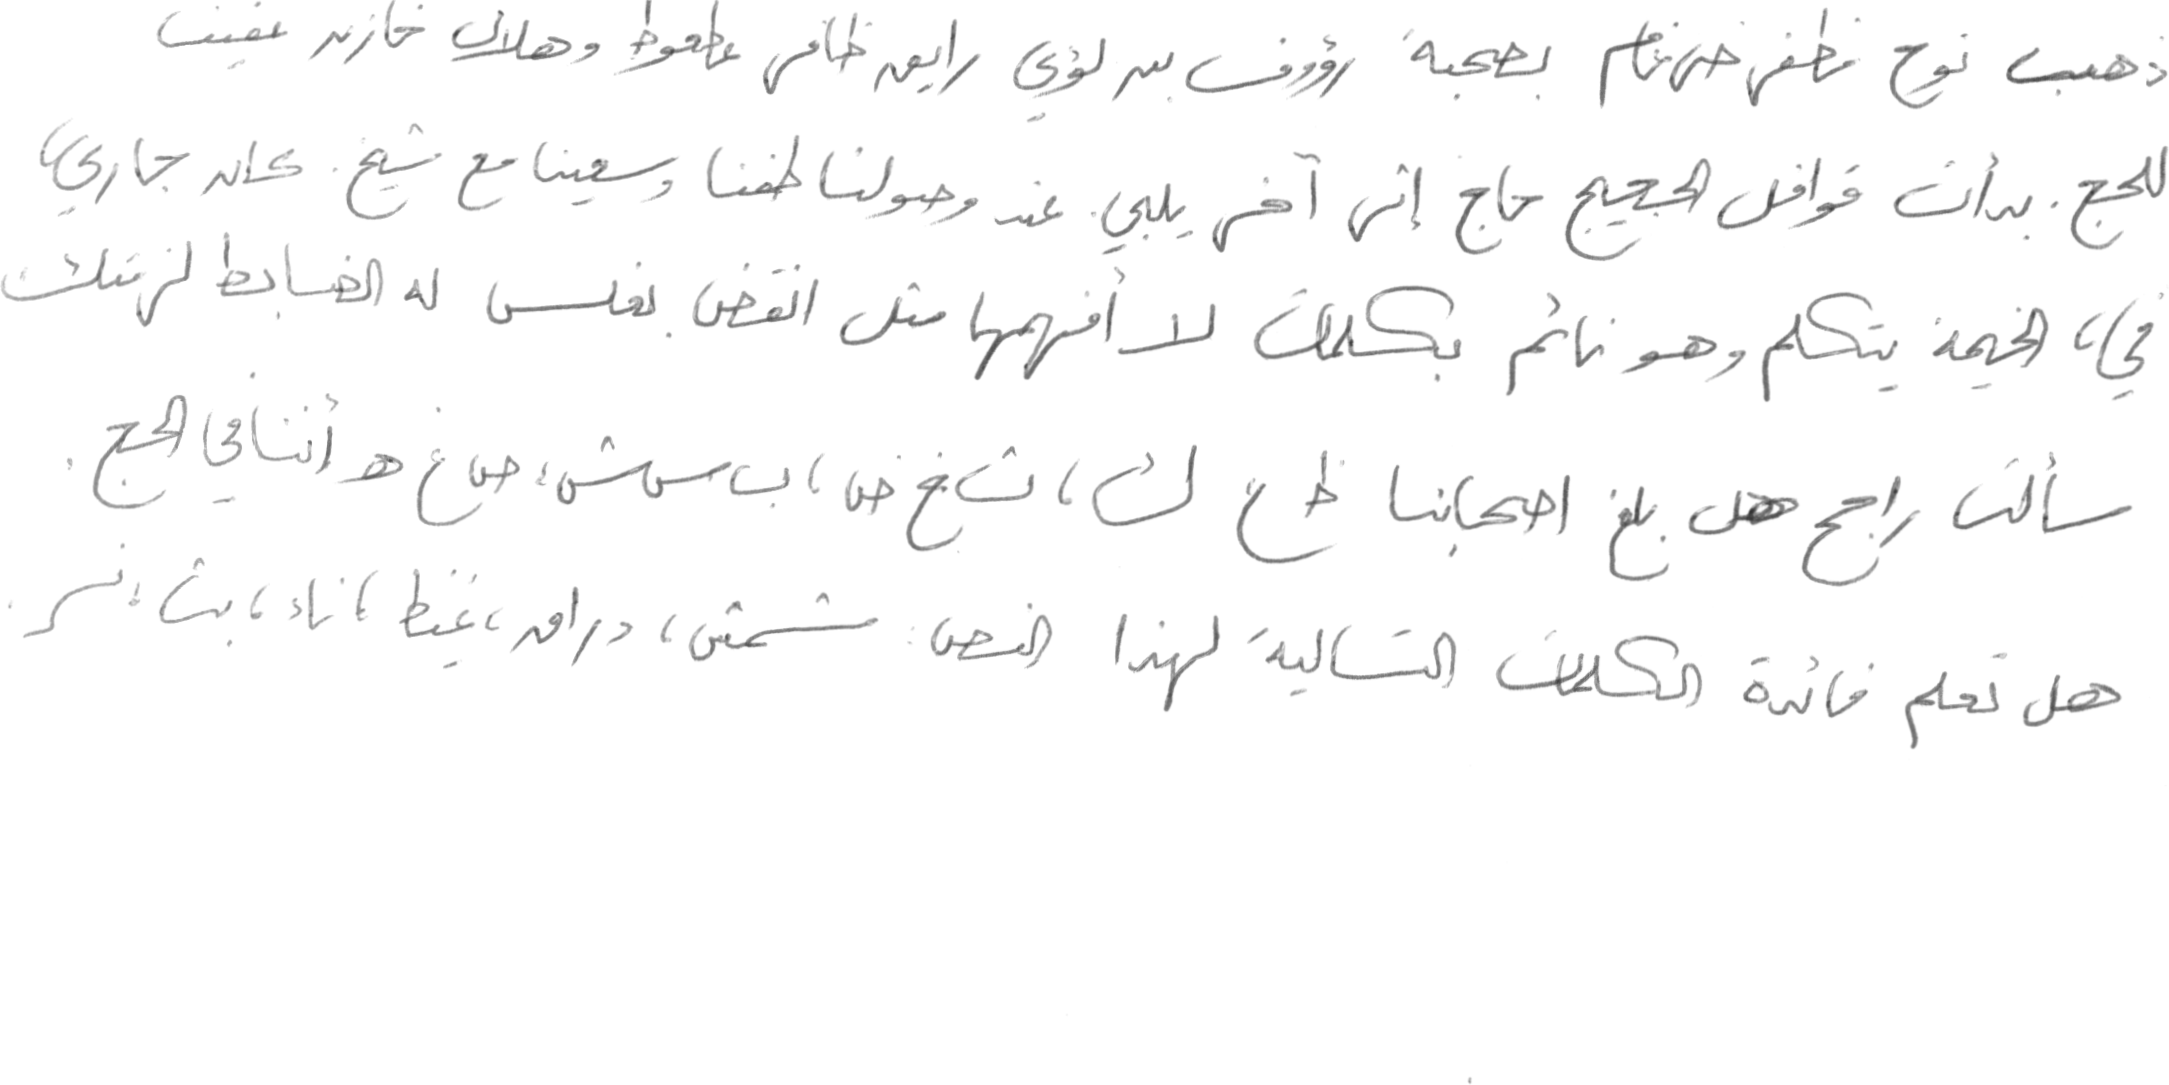 ذهب نوح مظفر ضرغام بصحبة رؤوف بن لؤي رايق ظافر عطعوط وهلال خازن عفيف
للحج. بدأت قوافل الحجيج حاج إثر آخر يلبي. عند وصولنا طفنا وسعينا مع شيخ. كان جاري،
في، الخيمة يتكلم وهو نائم بكلمات لا أفهمها مثل انقض بغلس له الضابط لزمتك
سألت راجح هل بلغ اصحابنا ظ ع ث، ث غ ض، ب س ش، ص غ ه أننا في الحج.
هل تعلم فائدة الكلمات التالية لهذا النص: مشمش، دراق، غيظ، ناد، بث، نمر.